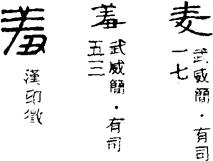 武威簡・有司
一七
羞
武威簡・有司
五三
羞
漢印徵